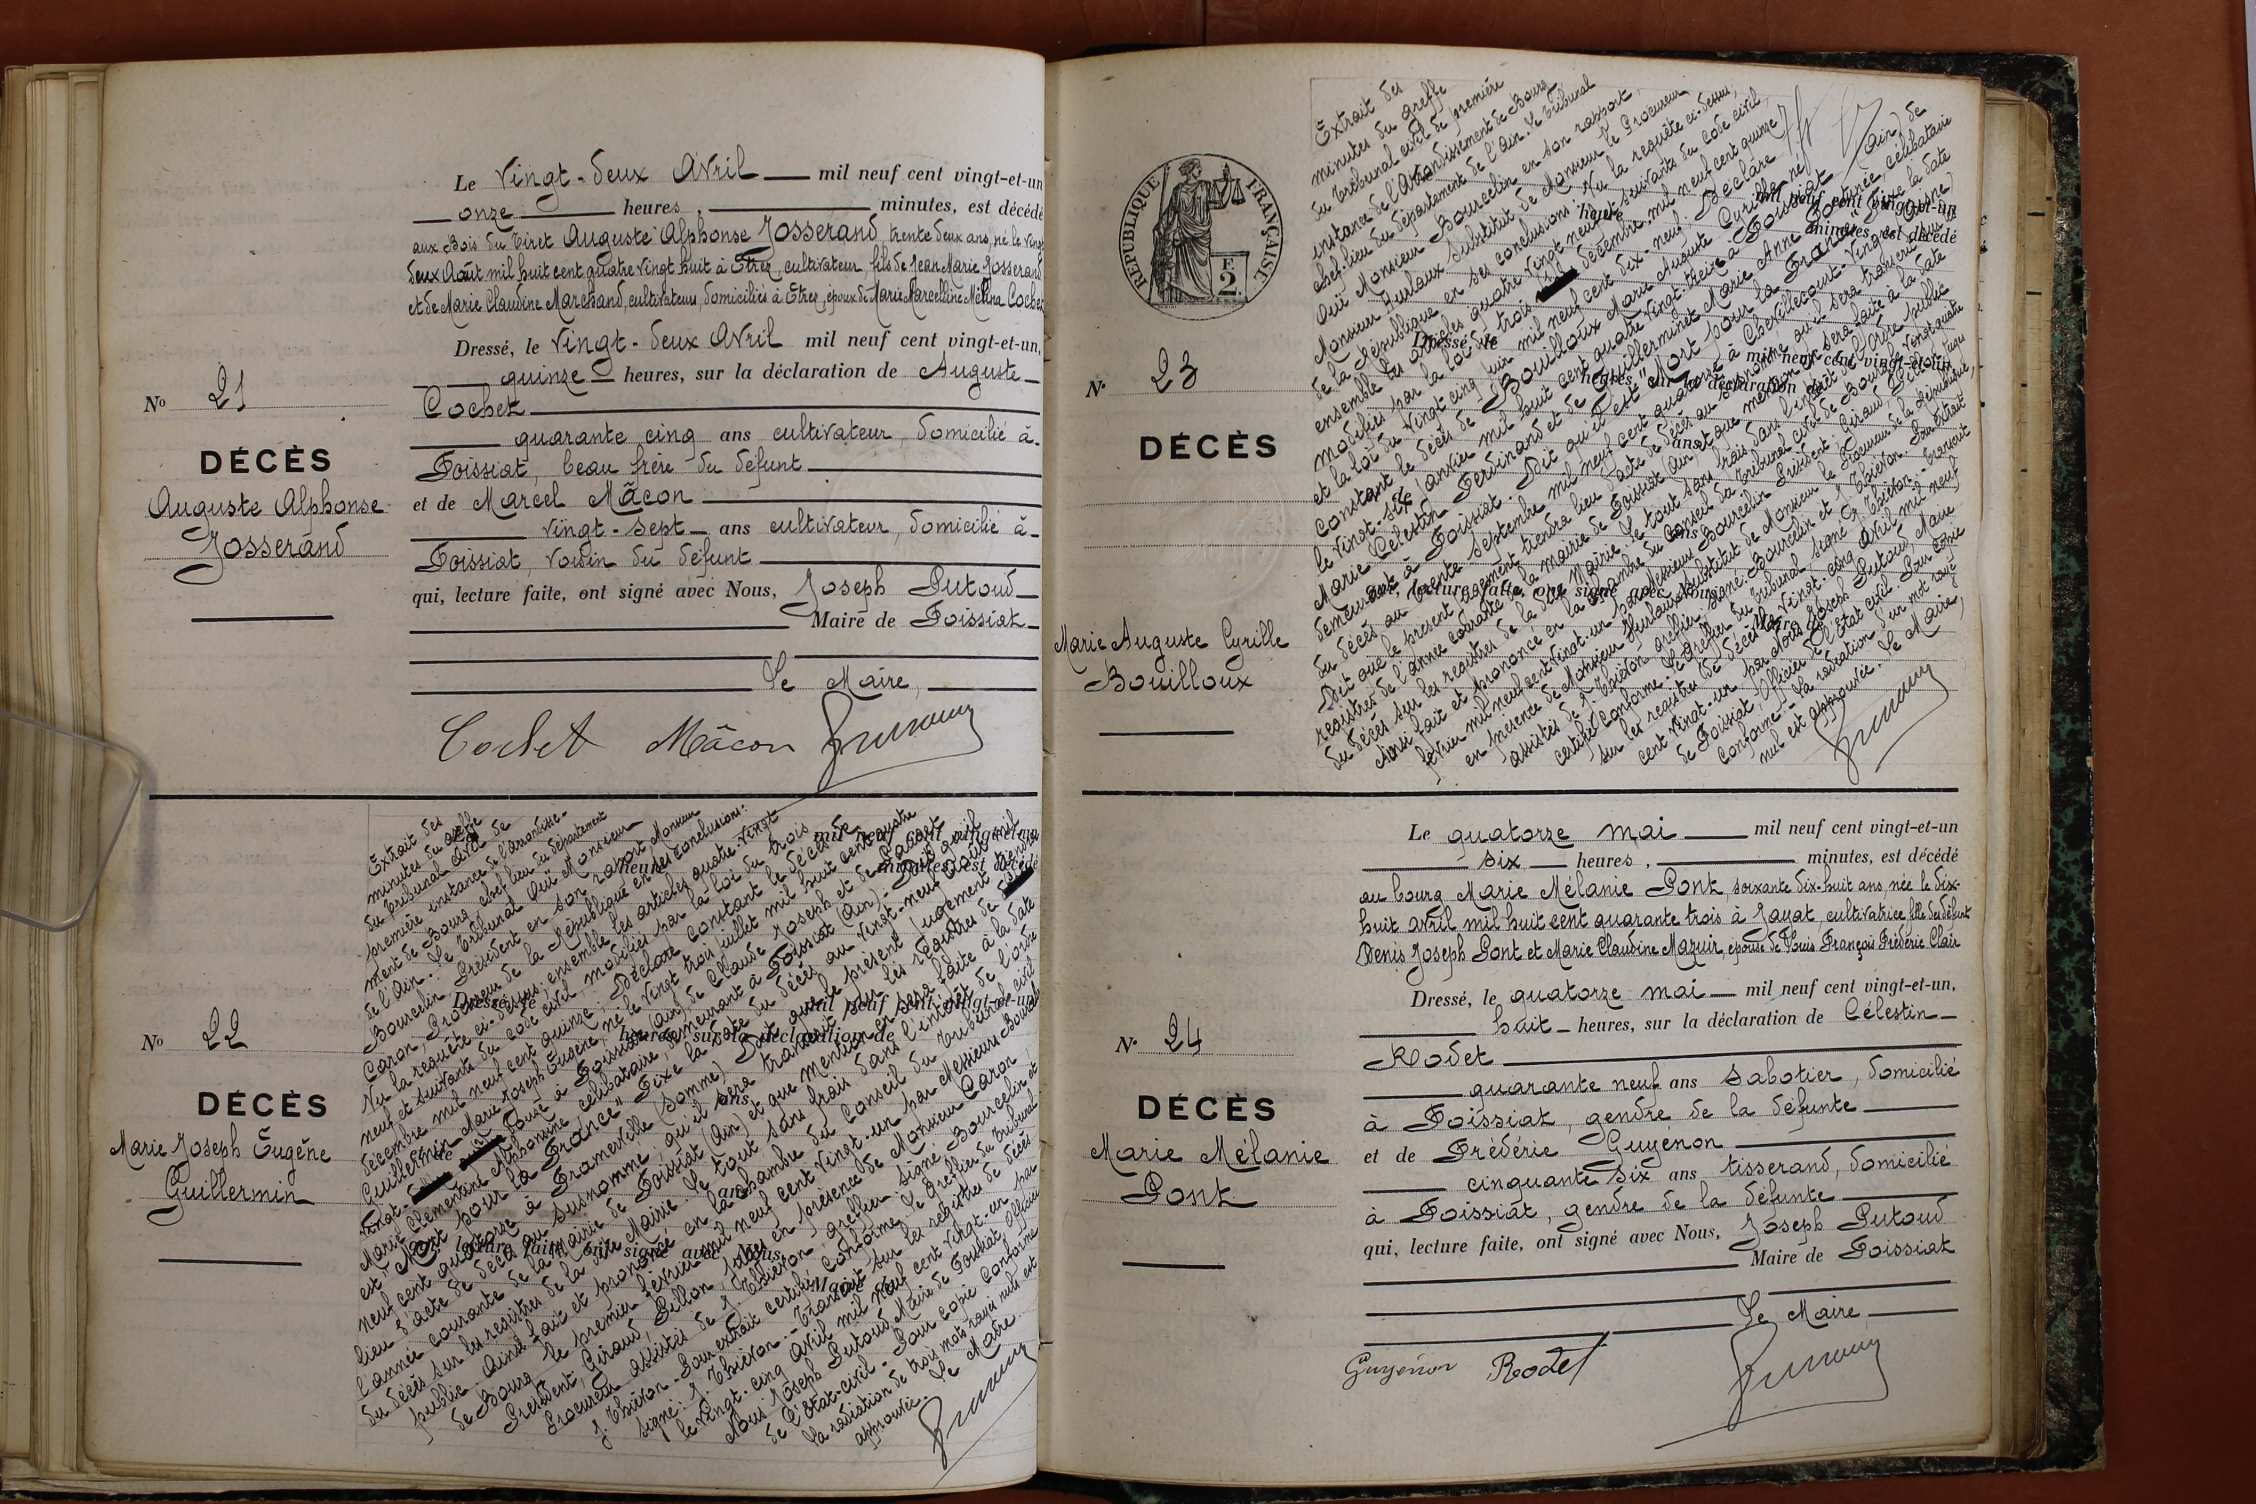 Le vingt-deux Avril mil neuf cent vingt-et-un
onze heures, minutes, est décédé
aux Bois du Tiret Auguste Alphonse Josserand, trente deux ans, né le vingt
deux Août mil huit cent quatre vingt huit à Étrez, cultivateur, fils de Jean Marie Josserand
et de Marie Claudine Marchand, cultivateurs, domiciliés à Étrez, époux de Marie Marcelline Mélina Cochet
Dressé, le vingt-deux Avril mil neuf cent vingt-et-un,
quinze heures, sur la déclaration de Auguste
Cochet
quarante cinq ans cultivateur, domicilié à
Foissiat, beau frère du défunt
et de Marcel Mâcon
vingt-sept ans cultivateur, domicilié à
Foissiat, voisin du défunt
qui, lecture faite, ont signé avec Nous, Joseph Putoud
Maire de Foissiat
Le Maire,
Cochet Mâcon
No 21
DÉCÈS
Auguste Alphonse
Josserand
No 22
DÉCÈS
Marie Joseph Eugène
Guillermin
Extrait des
minutes du greffe
du tribunal civil de
première instance de l'arrondisse-
ment de Bourg, chef lieu du département
de l'Ain. Le Tribunal Ouï Monsieur
Bourcelin, Président en son rapport, Monsieur
Caron, Procureur de la République en ses conclusions.
Vu la requête ci-dessus, ensemble les articles quatre-vingt
neuf et suivants du code civil modifiés par la loi du trois
décembre mil neuf cent quinze; Déclare constant le décès de
Guillermin Marie Joseph Eugène, né le vingt trois juillet mil huit cent quatre
vingt à Foissiat (Ain), de Claude Joseph et de
Marie Clémentine Alphonsine, célibataire, demeurant à Foissiat (Ain). Dit qu'il
est "Mort pour la France" Fixe la date du décès au vingt-neuf Août mil
neuf cent quatorze à Framerville (Somme) Dit que le présent jugement tiendra
lieu d'acte de décès au susnommé, qu'il sera transcrit sur les registres de
l'année courante de la mairie de Foissiat (Ain) et que mention en sera faite à la date
du décès sur les registres de la dite Mairie Le tout sans frais dans l'intérêt de l'ordre
public. Ainsi fait et prononcé en la chambre du Conseil du Tribunal civil
de Bourg, le premier février mil neuf cent vingt-un par Messieurs Bourcelin
Président, Giraud, Pillon, juges en présence de Monsieur Caron
Procureur assistés de J. Thiévon greffier signé Bourcelin et
J. Thiévon. Pour extrait certifié conforme. Le Greffier du Tribunal
signé: J. Thiévon. Transcrit sur les registres de décès
le vingt-cinq avril mil neuf cent vingt-un par
Nous Joseph Putoud Maire de Foissiat, Officier
de l'État-civil. Pour copie conforme
La radiation de trois mots rayés nuls est
approuvée. Le Maire
No 23
DÉCÈS
Marie Auguste Cyrille
Bouilloux
RÉPUBLIQUE FRANÇAISE
2F
Extrait des
minutes du greffe
du Tribunal civil de première
instance de l'Arrondissement de Bourg
chef-lieu du département de l'Ain. Le Tribunal
Ouï Monsieur Bourcelin en son rapport,
Monsieur Hurlaux substitut de Monsieur le Procureur
de la République en ses conclusions. Vu la requête ci-dessus,
ensemble les articles quatre vingt neuf et suivants du code civil,
modifiés par la loi du trois décembre mil neuf cent quinze
et la loi du vingt cinq juin mil neuf cent dix-neuf. Déclare
constant le décès de Bouilloux Marie Auguste Cyrille, né
le vingt-six janvier mil huit cent quatre vingt-treize à Foissiat (Ain) de
Marie Célestin Ferdinand et de Guilleminet Marie Anne Fortunée, célibataire
demeurant à Foissiat. Dit qu'il est "Mort pour la France" Fixe la date
du décès au trente septembre mil neuf cent quatorze à
Dit que le présent jugement tiendra lieu d'acte de décès au susnommé qu'il sera transcrit sur les
registres de l'année courante de la mairie de Foissiat (Ain) et que mention en sera faite à la date
du décès sur les registres de la dite Mairie Le tout sans frais dans l'intérêt de l'ordre public
Ainsi fait et prononcé en la chambre du Conseil du Tribunal civil de Bourg le vingt quatre
février mil neuf cent vingt-un par Messieurs Bourcelin Président, Giraud, Pillon, juges
en présence de Monsieur Hurlaux substitut de Monsieur le Procureur de la République,
assistés de J. Thiévon greffier signé: Bourcelin et J. Thiévon. Pour extrait
certifié conforme. Le Greffier du Tribunal, signé J. Thiévon. Transcrit
sur les registres de décès le vingt-cinq avril mil neuf
cent vingt-un par Nous Joseph Putoud, Maire
de Foissiat, Officier de l'État civil. Pour copie
conforme. La radiation d'un mot rayé
nul est approuvée. Le Maire,
Le quatorze mai mil neuf cent vingt-et-un
six heures, minutes, est décédé
au bourg Marie Mélanie Pont, soixante dix-huit ans, née le dix-
huit avril mil huit cent quarante trois à Jayat, cultivatrice, fille des défunts
Denis Joseph Pont et Marie Claudine Mazuir, épouse de Louis François Frédéric Clair
Dressé, le quatorze mai mil neuf cent vingt-et-un,
huit heures, sur la déclaration de Célestin
Rodet
quarante neuf ans sabotier, domicilié
à Foissiat, gendre de la défunte
et de Frédéric Guyénon
cinquante six ans tisserand, domicilié
à Foissiat, gendre de la défunte
qui, lecture faite, ont signé avec Nous, Joseph Putoud
Maire de Foissiat
Le Maire,
Guyénon Rodet
No 24
DÉCÈS
Marie Mélanie
Pont